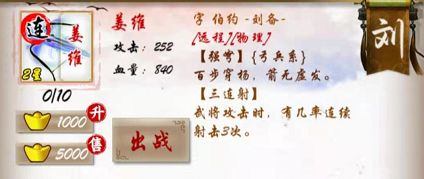 连
姜维
2星
0/10
1000 升
5000 售
姜维
攻击：252
血量：840
出战
字 伯约 -刘备-
[远程][物理]
【强弩】{弓兵系}
百步穿杨，箭无虚发。
【三连射】
武将攻击时，有几率连续
射击3次。
刘